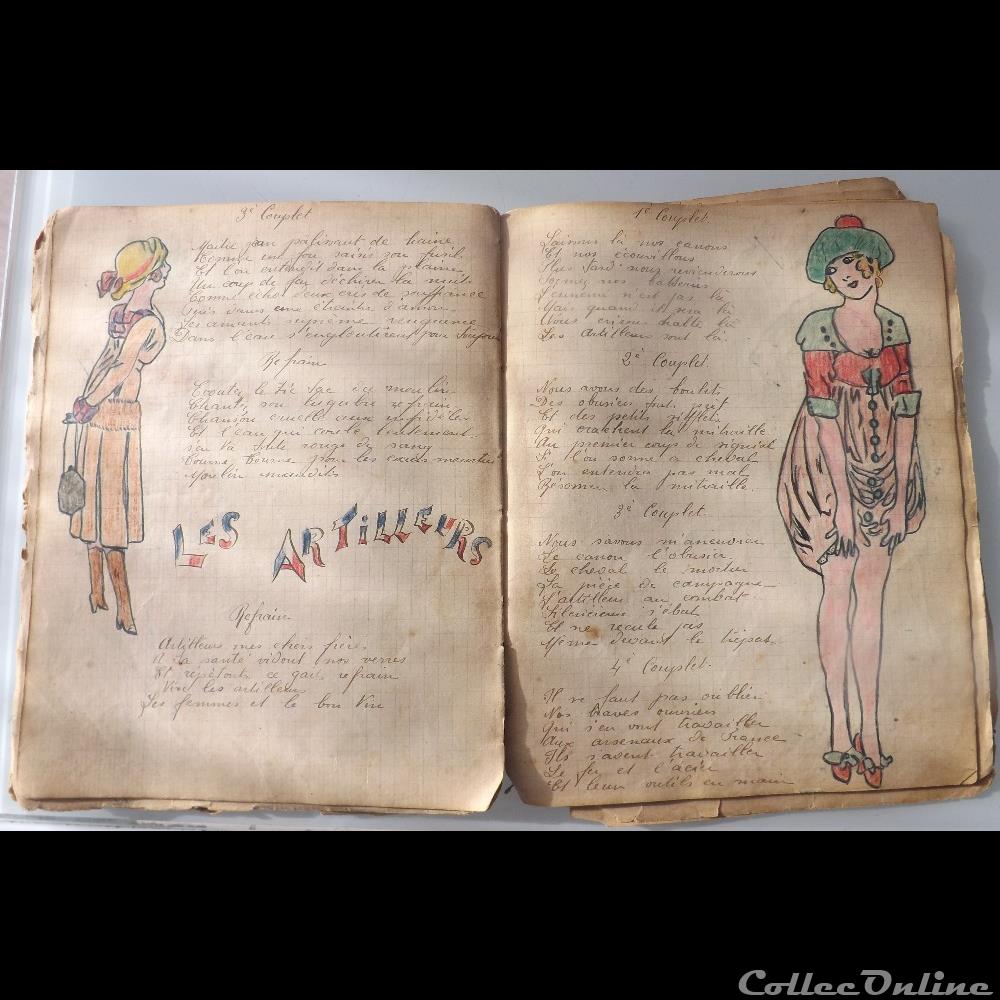 3e Couplet
pâlissant de haine
Comme un fou saisi son fusil
Et l'on entendit dans la plaine
Un coup de feu déchirer la nuit
Comme écho deux cris de souffrance
Puis dans une étreinte d'amour
Les amants vengeance
Dans l'eau s'engloutirent pour
Refrain
Ecoutez le tic tac du moulin
Chante son lugubre refrain
Chanson cruelle aux infidèles
Et l'eau qui coule lentement
rouge de sang
Tourne tourne pour les
Moulin maudits
LES ARTILLEURS
Refrain
Artilleurs mes chers frères
A sa santé vidont nos verres
Et répétont ce gai refrain
Vive les artilleurs
Les femmes et le bon Vin
1e Couplet.
Laissons là nos canons
Et nos écouvillons
Plus tard nous reviendrons
nos
L'ennemi n'est pas là
Mais quand il sera là
Nous crieron halte là
Les artilleurs sont là.
2e Couplet.
Nous avons des boulets
Des obusiers
Et des petits
Qui crachent la mitraille
Au premier coup de signal
Si l'on sonne à cheval
L'on entendra pas mal
Résonner la mitraille.
3e Couplet.
Nous savons
Le canon l'obusier
Le cheval le mortier
La pièce de campagne
L'artilleur au combat
Silencieux s'ébat
Et ne recule pas
Même devant le trépas.
4e Couplet.
Il ne faut pas oublier
Nos braves ouvriers
Qui s'en vont travailler
Aux arsenaux de France
Ils savent travailler
Le fer et l'acier
Et leur outils en main
CollecOnline